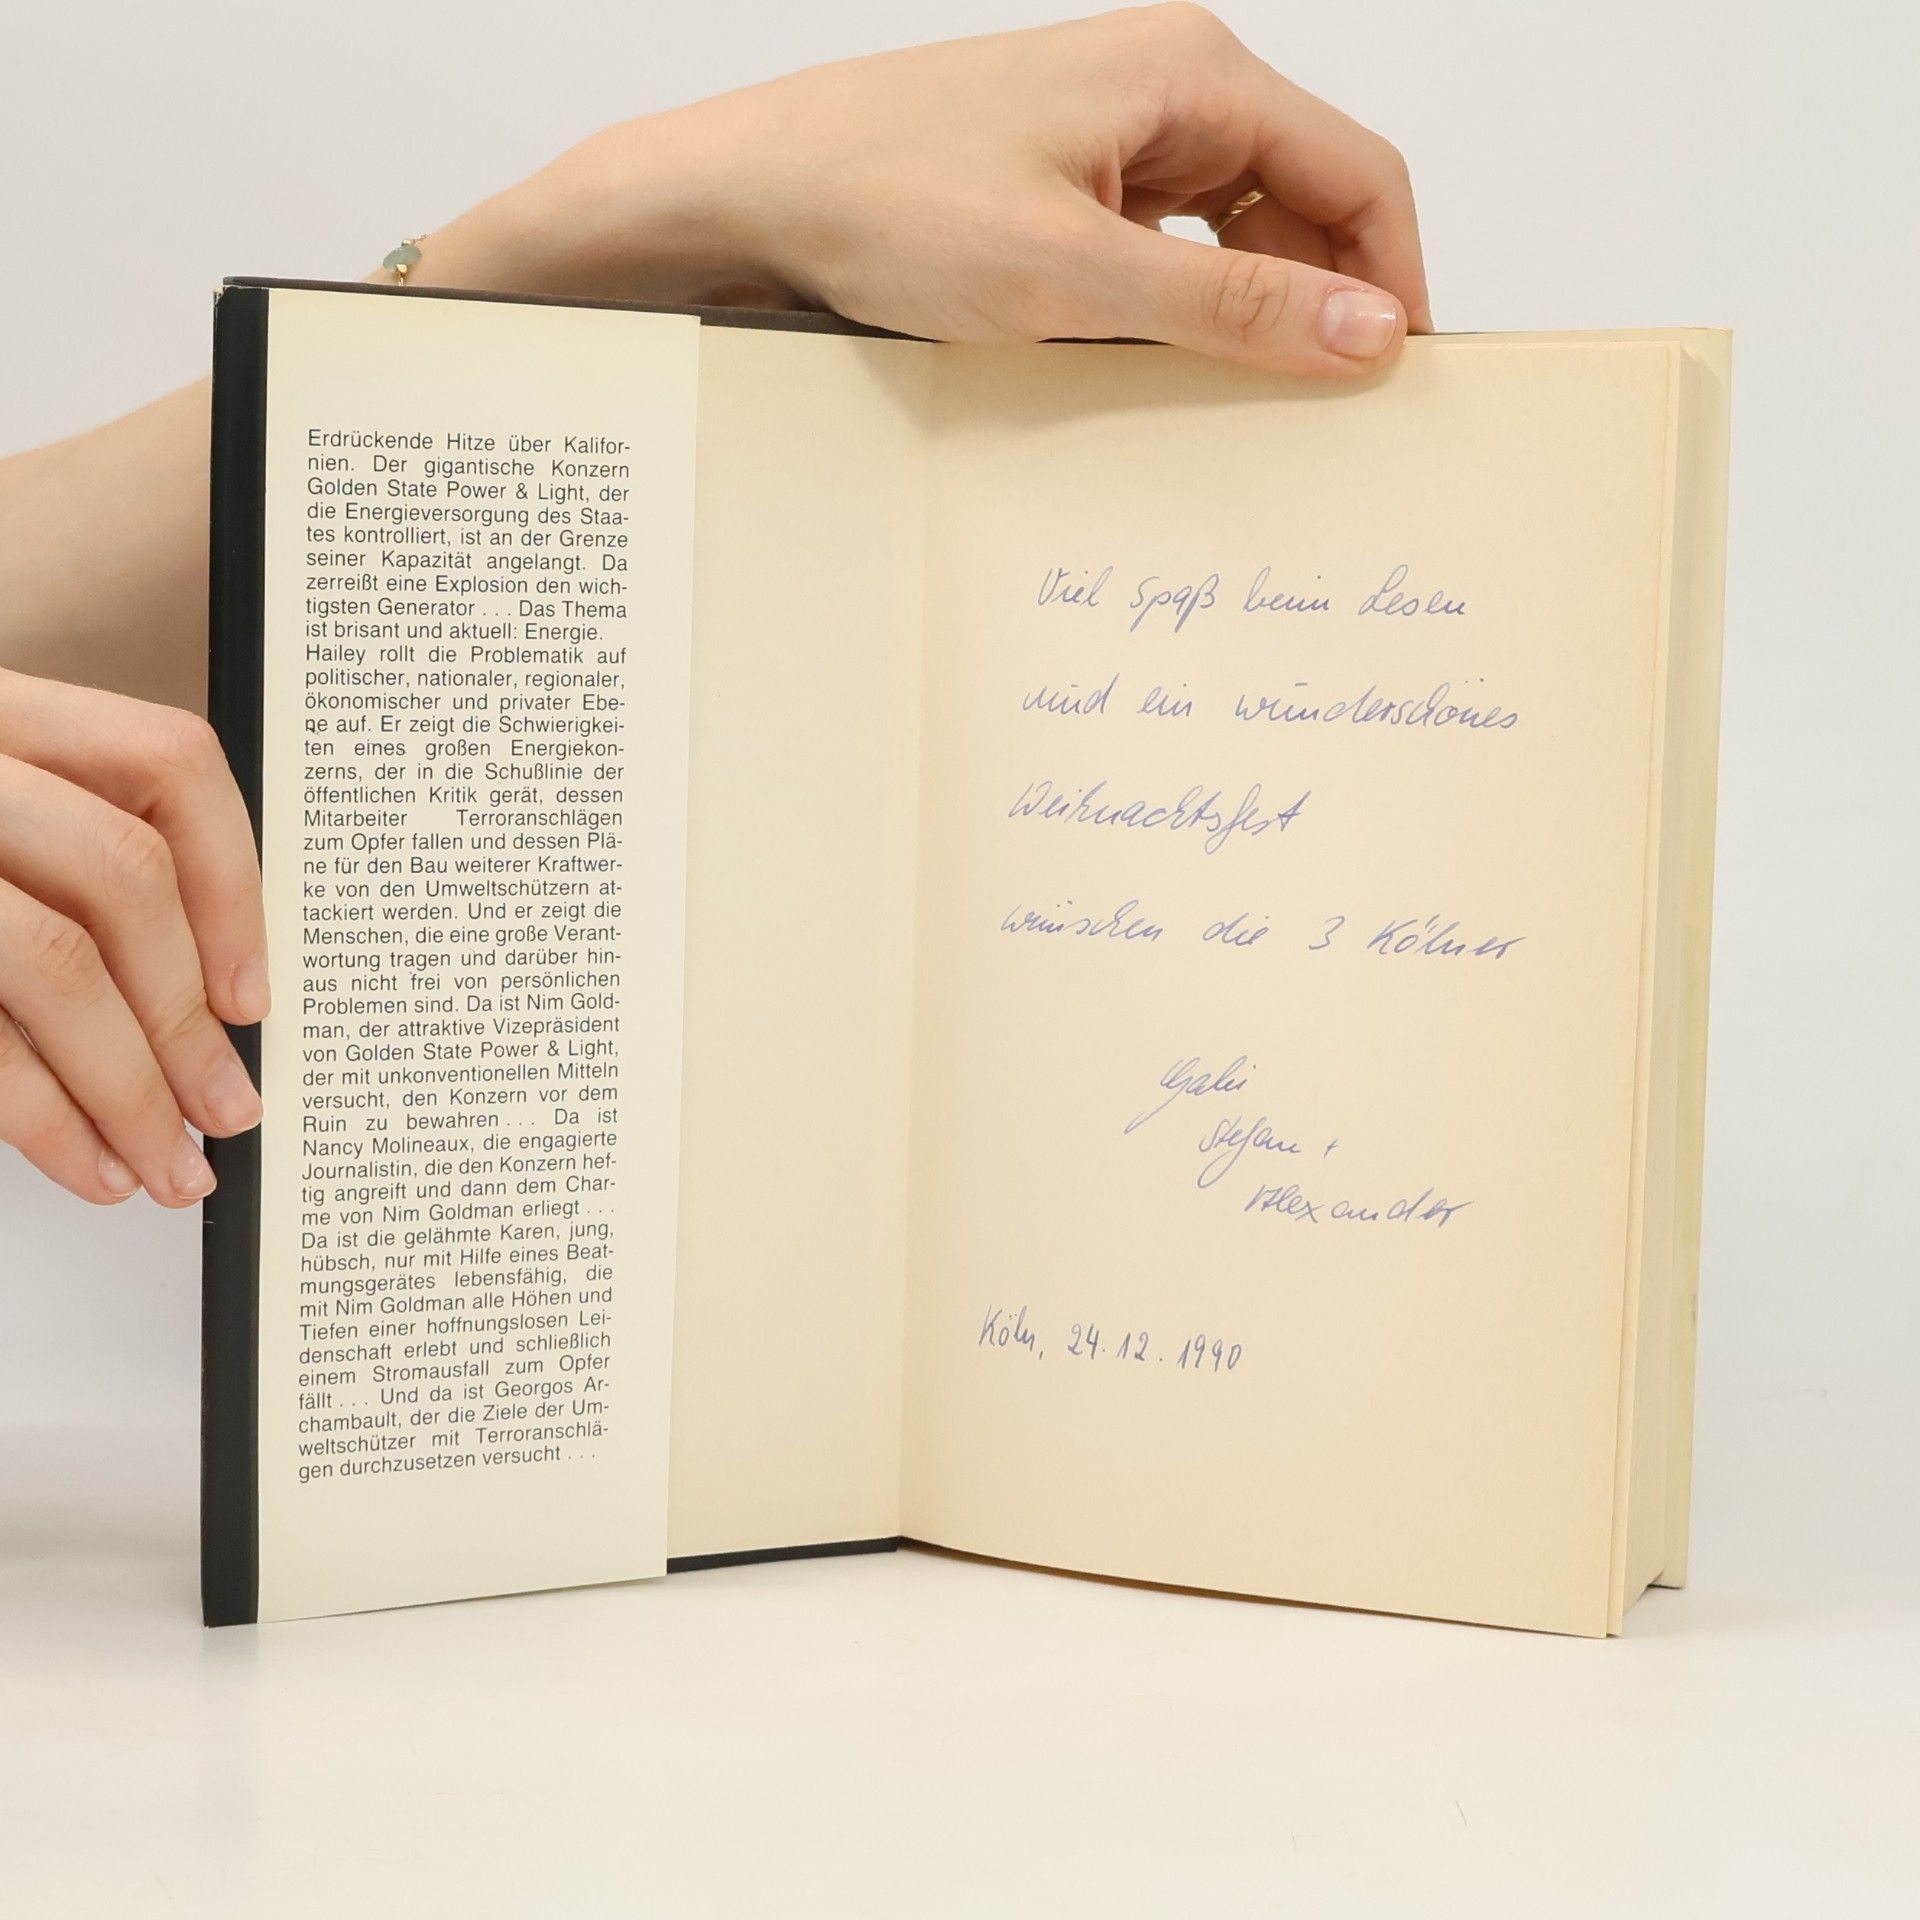 Erdrückende Hitze über Kalifor-
nien. Der gigantische Konzern
Golden State Power & Light, der
die Energieversorgung des Staa-
tes kontrolliert, ist an der Grenze
seiner Kapazität angelangt. Da
zerreißt eine Explosion den wich-
tigsten Generator . . . Das Thema
ist brisant und aktuell: Energie.
Hailey rollt die Problematik auf
politischer, nationaler, regionaler,
ökonomischer und privater Ebe-
ne auf. Er zeigt die Schwierigkei-
ten eines großen Energiekon-
zerns, der in die Schußlinie der
öffentlichen Kritik gerät, dessen
Mitarbeiter Terroranschlägen
zum Opfer fallen und dessen Plä-
ne für den Bau weiterer Kraftwer-
ke von den Umweltschützern at-
tackiert werden. Und er zeigt die
Menschen, die eine große Verant-
wortung tragen und darüber hin-
aus nicht frei von persönlichen
Problemen sind. Da ist Nim Gold-
man, der attraktive Vizepräsident
von Golden State Power & Light,
der mit unkonventionellen Mitteln
versucht, den Konzern vor dem
Ruin zu bewahren . . . Da ist
Nancy Molineaux, die engagierte
Journalistin, die den Konzern hef-
tig angreift und dann dem Char-
me von Nim Goldman erliegt . . .
Da ist die gelähmte Karen, jung,
hübsch, nur mit Hilfe eines Beat-
mungsgerätes lebensfähig, die
mit Nim Goldman alle Höhen und
Tiefen einer hoffnungslosen Lei-
denschaft erlebt und schließlich
einem Stromausfall zum Opfer
fällt . . . Und da ist Georgos Ar-
chambault, der die Ziele der Um-
weltschützer mit Terroranschlä-
gen durchzusetzen versucht . . .
Viel Spaß beim Lesen
und ein wunderschönes
Weihnachtsfest
wünschen die 3 Kölner
Gabi
Stefan +
Alexander
Köln, 24.12.1990